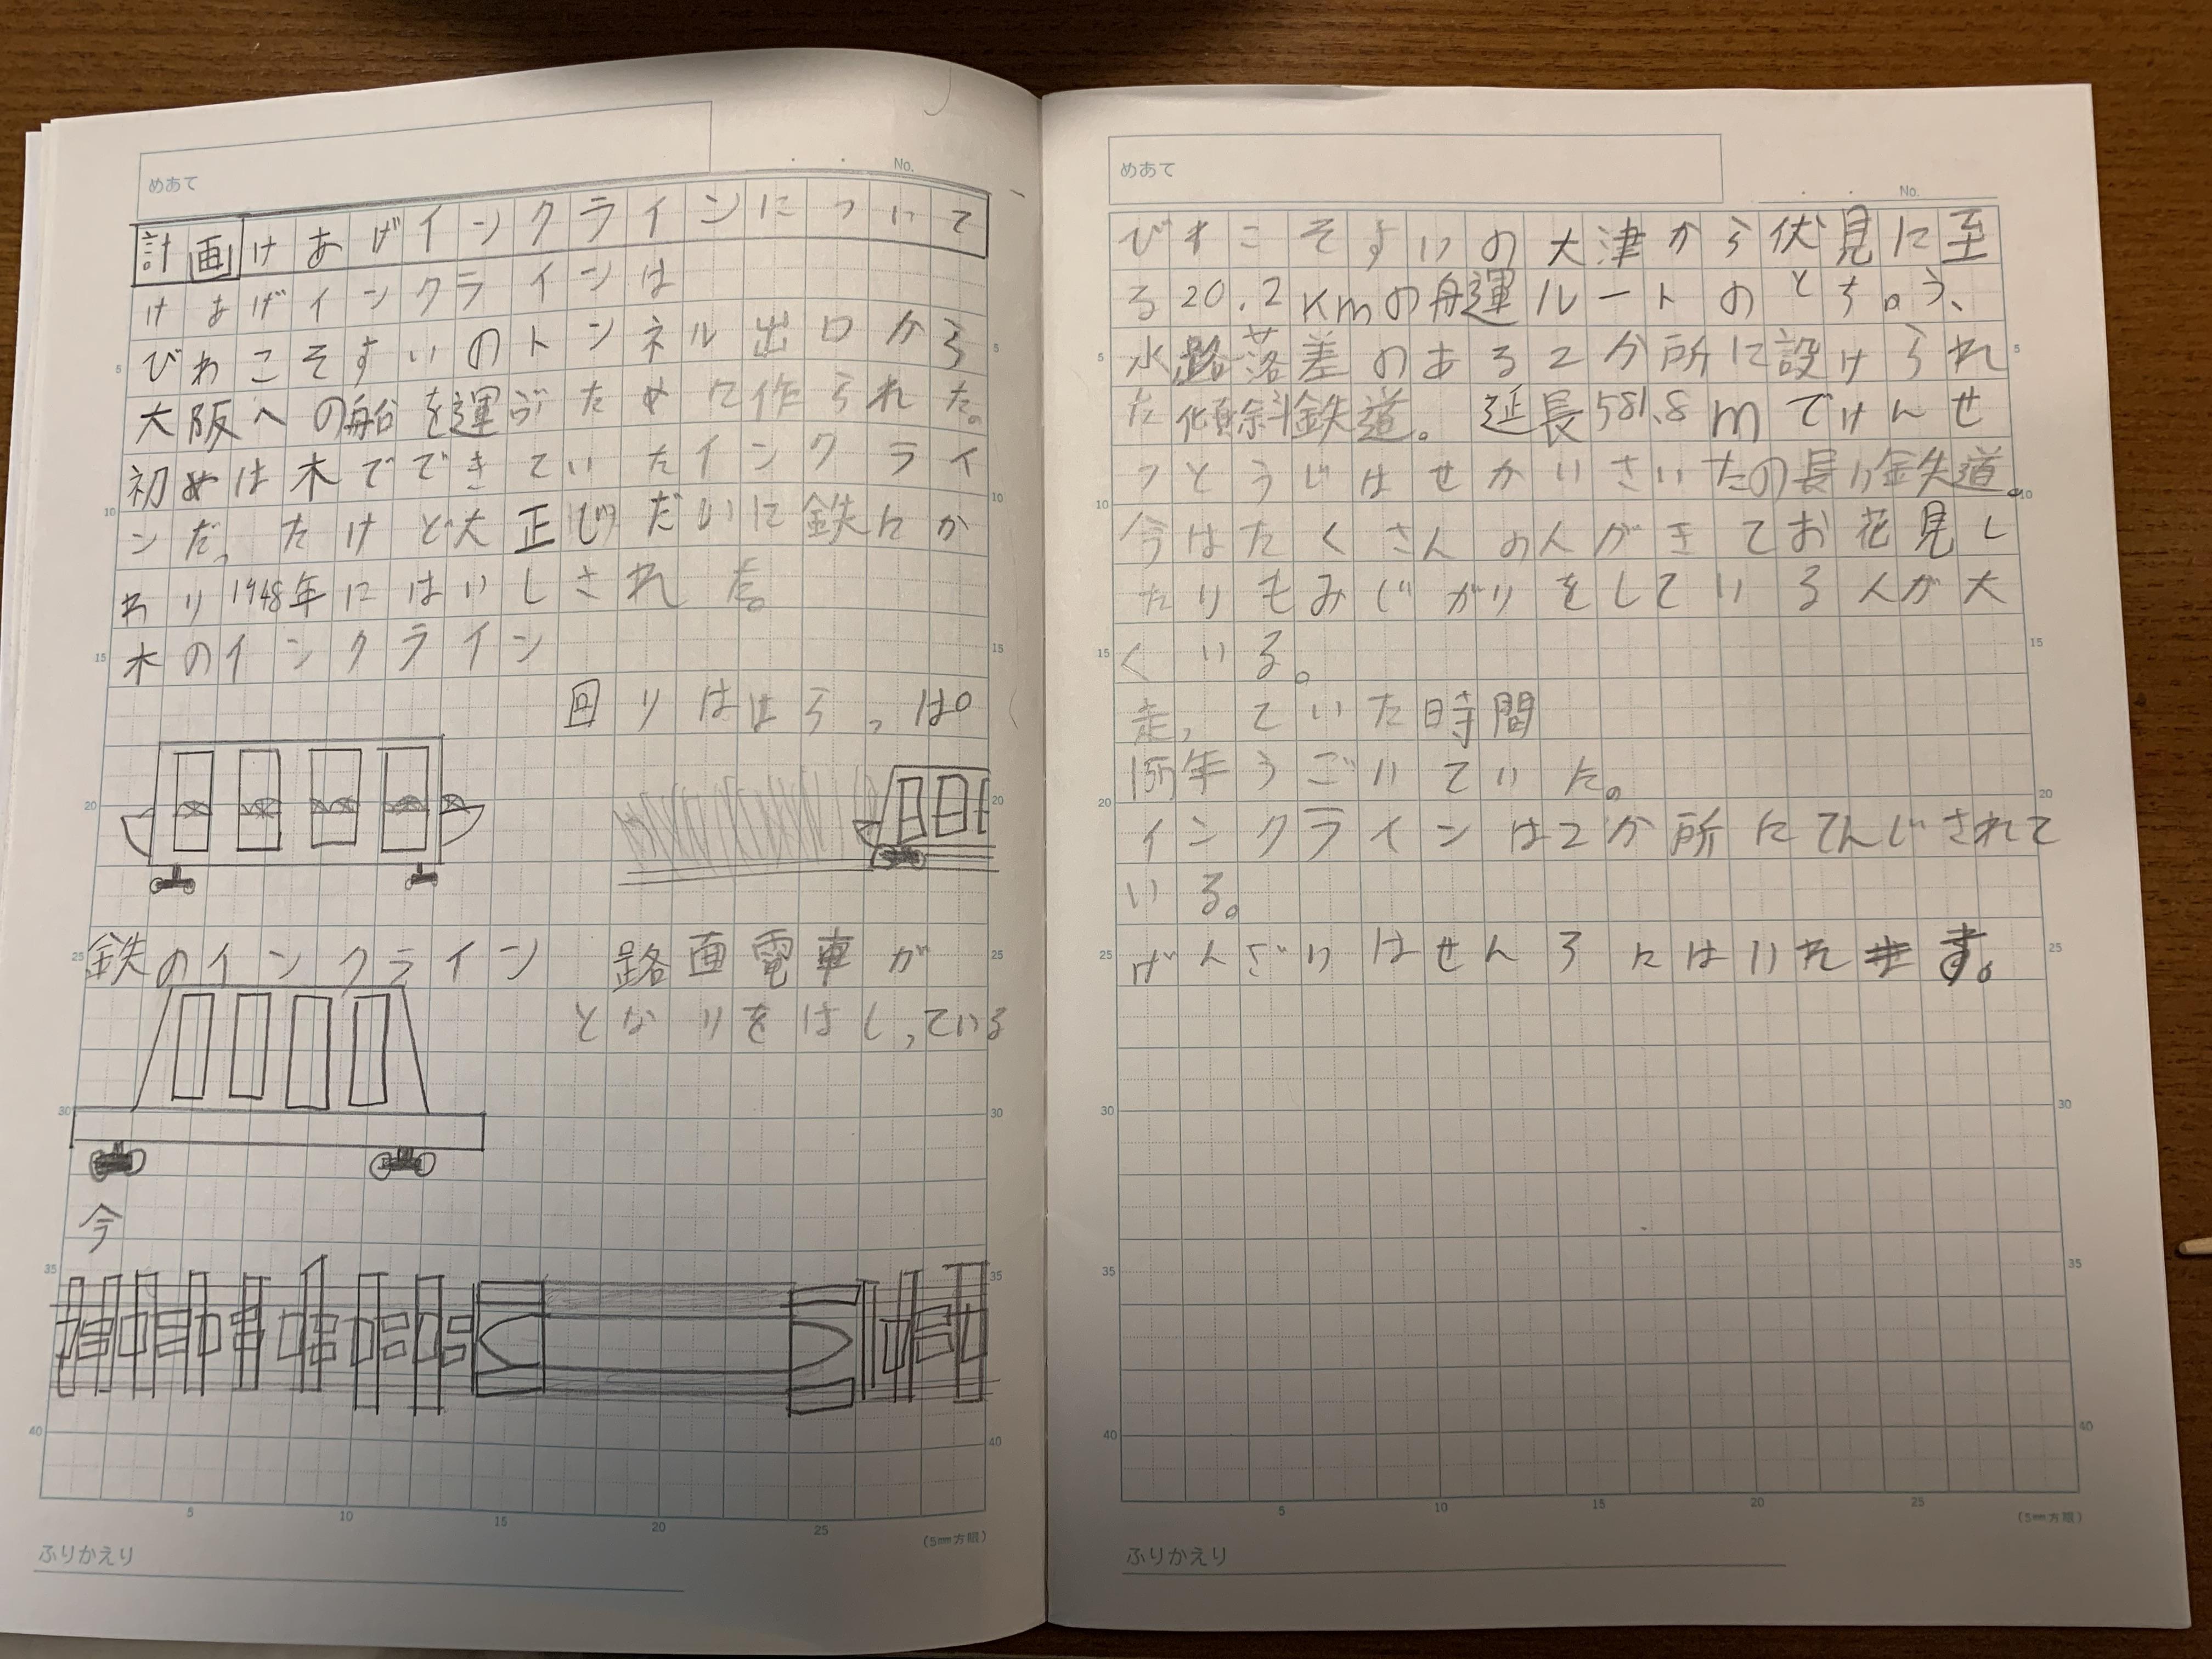 めあて
No.
計画けあげインクラインについて
けあげインクラインは
びわこそすいのトンネル出口から
大阪への船を運ぶために作られた。
初めは木でできていたインクライ
ンだったけど大正じだいに鉄にか
わり1948年にはいしされた。
木のインクライン
回りははらっぱ
鉄のインクライン
路面電車が
となりをはしっている
今
(5mm方眼)
ふりかえり
めあて
No.
びわこそすいの大津から伏見に至
る20.2Kmの舟運ルートのとち。う、
水路落差のある2か所に設けられ
た傾斜鉄道。延長581.8mでけんせ
つとうじはせかいさいたの長い鉄道。
今はたくさんの人がきてお花見し
たりもみじがりをしている人が大
くいる。
走っていた時間
年うごいていた。
インクラインは2か所にてんじされて
いる。
げんざいはせんろにはいれます。
(5mm方眼)
ふりかえり